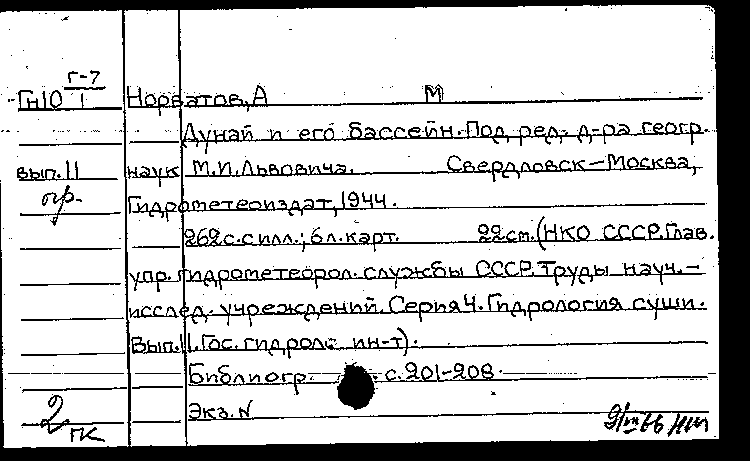 Г-7
Гн10 1 Норватов, А М
Дунай и его бассейн. Под ред. д-ра геогр.
вып. 11 наук М.И. Львовича. Свердловск–Москва,
пр. Гидрометеоиздат, 1944.
262 с. с илл.; 6 л. карт. 22 см. (НКО СССР. Глав.
упр. гидрометеорол. службы СССР. Труды науч.–
исслед. учреждений. Серия 4. Гидрология суши.
Вып. 11. Гос. гидролс ин-т).
Библиогр. с. 201-208.
Экз. N
2 ГК